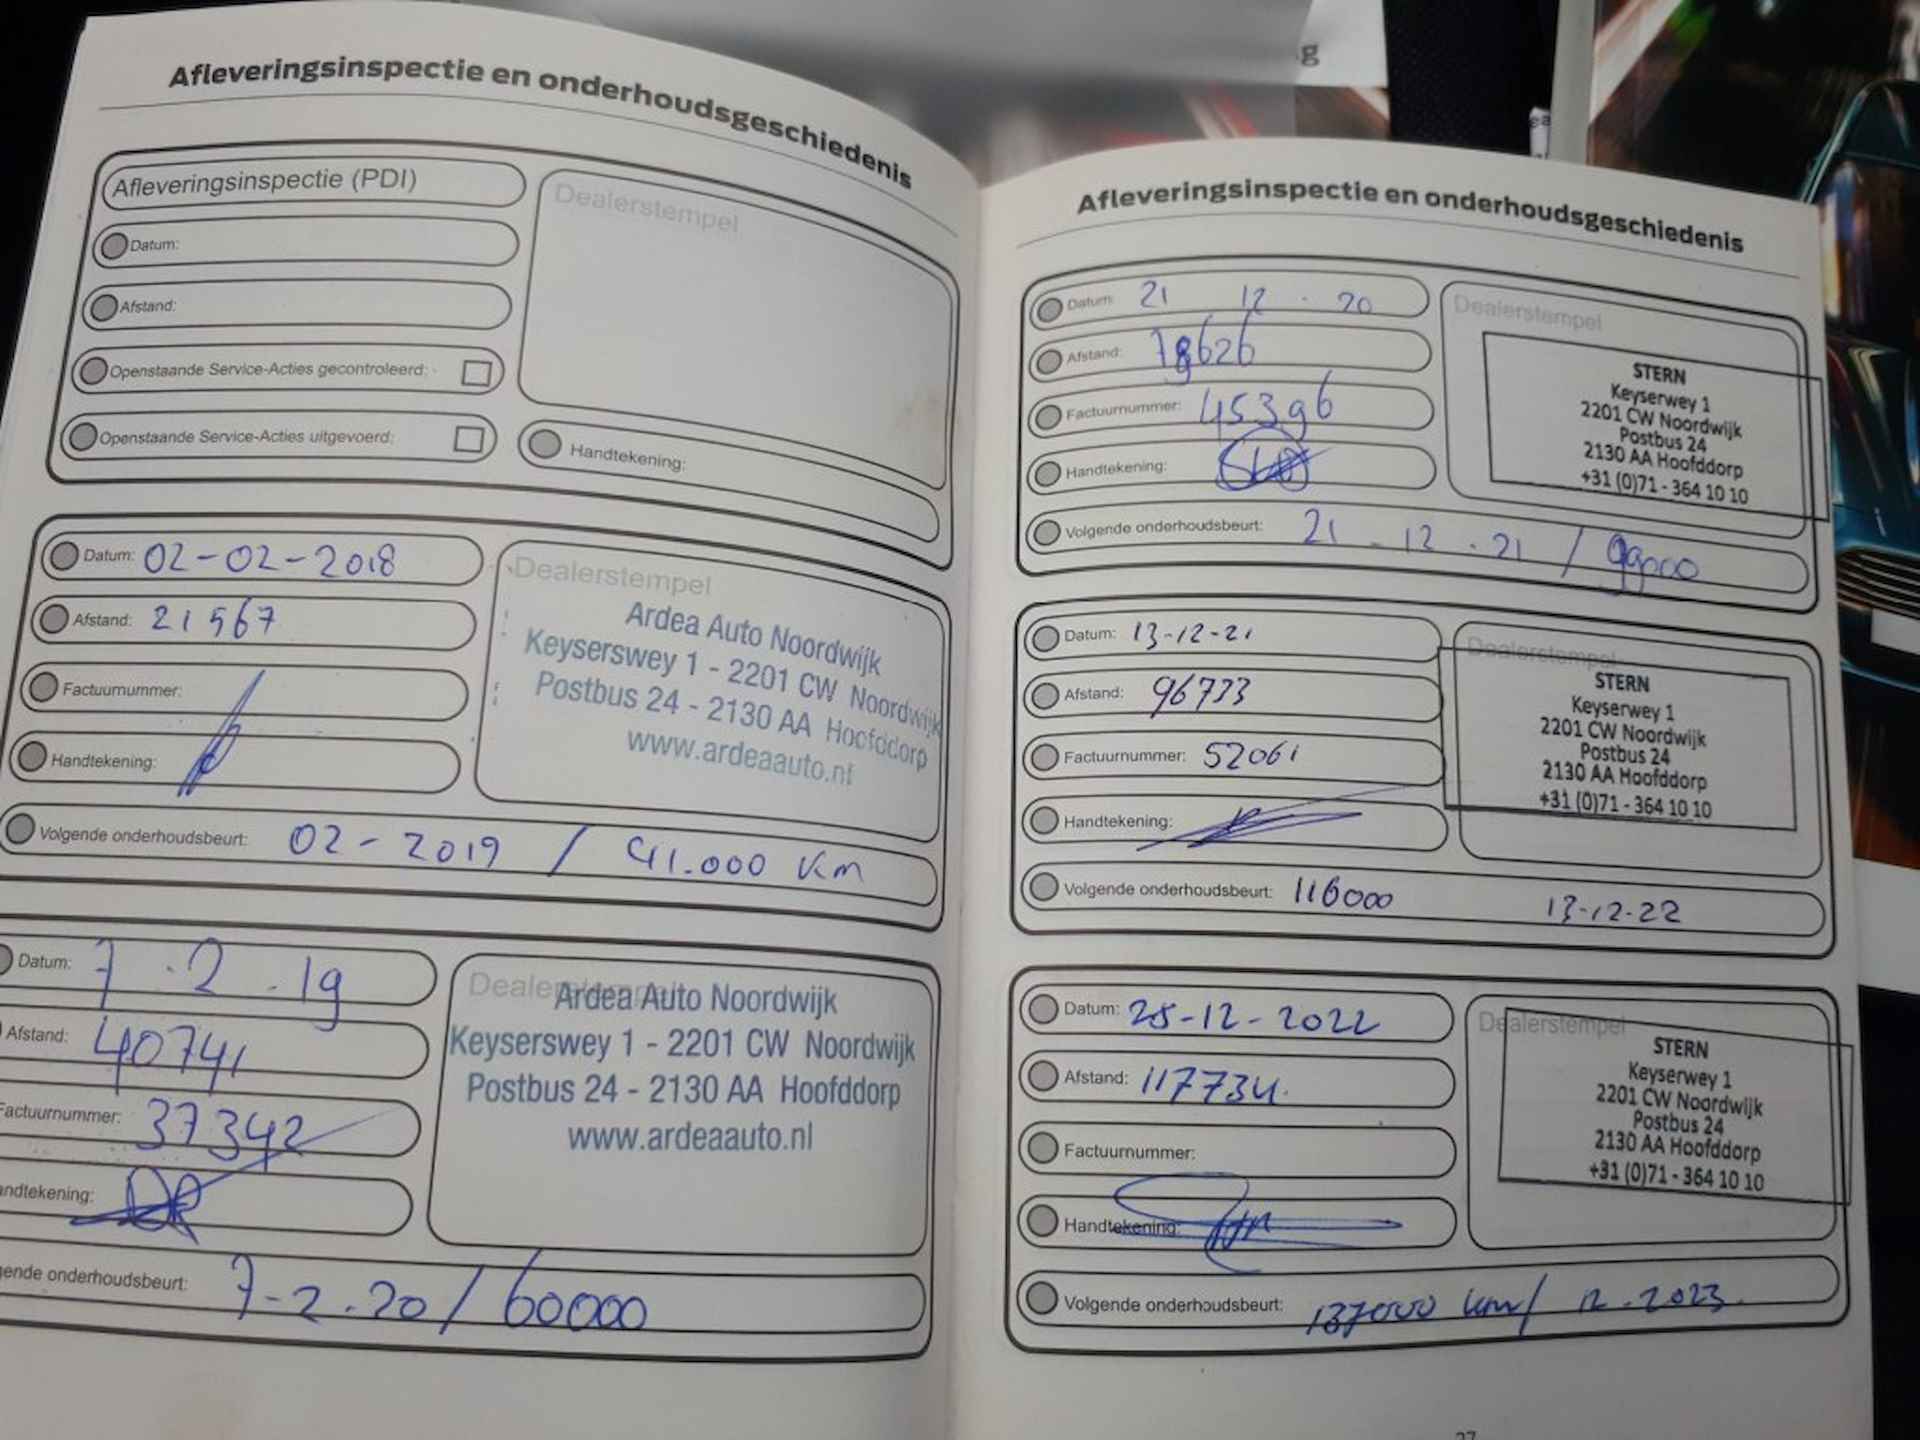 Afleveringsinspectie en onderhoudsgeschiedenis
Afleveringsinspectie (PDI)
Datum:
Afstand:
Openstaande Service-Acties gecontroleerd:
Openstaande Service-Acties uitgevoerd:
Dealerstempel
Handtekening:
Datum: 02-02-2018
Afstand: 21567
Factuurnummer:
Handtekening:
Dealerstempel
Ardea Auto Noordwijk
Keyserswey 1 - 2201 CW Noordwijk
Postbus 24 - 2130 AA Hoofddorp
www.ardeaauto.nl
Volgende onderhoudsbeurt: 02-2019 / 41.000 km
Datum: 7.2.19
Afstand: 40741
Factuurnummer: 37342
andtekening:
Dealerstempel
Ardea Auto Noordwijk
Keyserswey 1 - 2201 CW Noordwijk
Postbus 24 - 2130 AA Hoofddorp
www.ardeaauto.nl
gende onderhoudsbeurt: 7-2.20 / 60000
Afleveringsinspectie en onderhoudsgeschiedenis
Datum: 21 12 . 20
Afstand: 78626
Factuurnummer: 45396
Handtekening:
Dealerstempel
STERN
Keyserwey 1
2201 CW Noordwijk
Postbus 24
2130 AA Hoofddorp
+31 (0)71 - 364 10 10
Volgende onderhoudsbeurt: 21 - 12 . 21 / 99000
Datum: 13-12-21
Afstand: 96733
Factuurnummer: 52061
Handtekening:
Dealerstempel
STERN
Keyserwey 1
2201 CW Noordwijk
Postbus 24
2130 AA Hoofddorp
+31 (0)71 - 364 10 10
Volgende onderhoudsbeurt: 116000 13-12-22
Datum: 28-12-2022
Afstand: 117734.
Factuurnummer:
Handtekening:
Dealerstempel
STERN
Keyserwey 1
2201 CW Noordwijk
Postbus 24
2130 AA Hoofddorp
+31 (0)71 - 364 10 10
Volgende onderhoudsbeurt: 137000 km/ 12.2023.